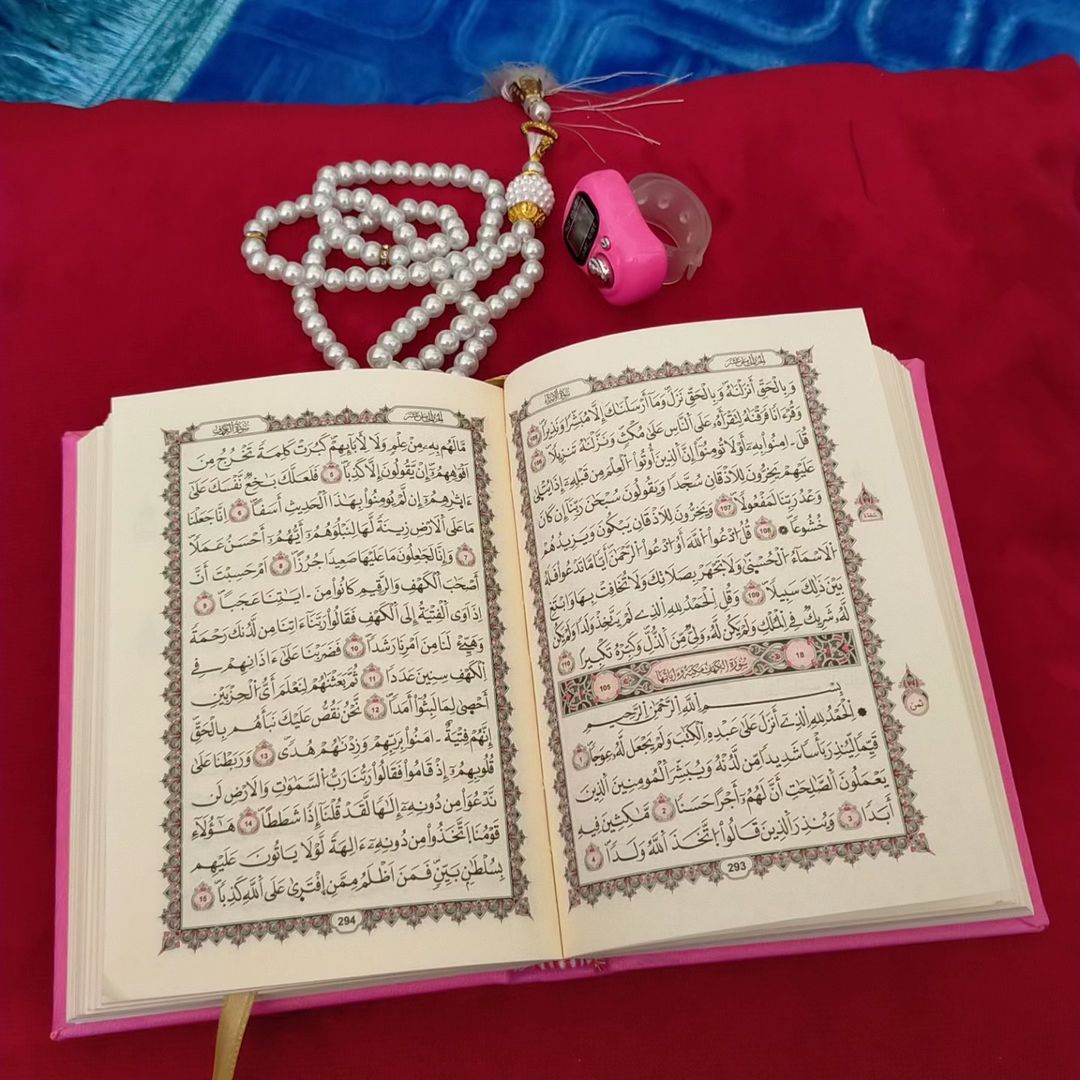 سورة الإسراء
الجزء الخامس عشر
وَبِالْحَقِّ أَنزَلْنَٰهُ وَبِالْحَقِّ نَزَلَ وَمَا أَرْسَلْنَٰكَ إِلَّا مُبَشِّراً وَنَذِيراً 105
وَقُرْءَاناً فَرَقْنَٰهُ لِتَقْرَأَهُۥ عَلَى النَّاسِ عَلَىٰ مُكْثٍ وَنَزَّلْنَٰهُ تَنزِيلاً 106
قُلَ ـ امِنُواْ بِهِۦٓ أَوْ لَا تُومِنُوٓاْ إِنَّ الذِينَ أُوتُواْ الْعِلْمَ مِن قَبْلِهِۦٓ إِذَا يُتْلَىٰ
عَلَيْهِمْ يَخِرُّونَ لِلَاذْقَانِ سُجَّداً وَيَقُولُونَ سُبْحَٰنَ رَبِّنَآ إِن كَانَ
وَعْدُ رَبِّنَا لَمَفْعُولاً 107 وَيَخِرُّونَ لِلَاذْقَانِ يَبْكُونَ وَيَزِيدُهُمْ
خُشُوعاً 108 قُلُ ادْعُواْ اللَّهَ أَوُ ادْعُواْ الرَّحْمَٰنَ أَيّاً مَّا تَدْعُواْ فَلَهُ
الَاسْمَآءُ الْحُسْنَىٰ وَلَا تَجْهَرْ بِصَلَاتِكَ وَلَا تُخَافِتْ بِهَا وَابْتَغِ
بَيْنَ ذَٰلِكَ سَبِيلاً 109 وَقُلِ الْحَمْدُ لِلهِ الذِے لَمْ يَتَّخِذْ وَلَداً وَلَمْ يَكُن
لَّهُۥ شَرِيكٌ فِے الْمُلْكِ وَلَمْ يَكُن لَّهُۥ وَلِيٌّ مِّنَ الذُّلِّ وَكَبِّرْهُ تَكْبِيراً 110
18 سورة الكهف مكية وءاياتها 105
بِسْمِ اللَّهِ الرَّحْمَٰنِ الرَّحِيمِ
الْحَمْدُ لِلهِ الذِےٓ أَنزَلَ عَلَىٰ عَبْدِهِ الْكِتَٰبَ وَلَمْ يَجْعَل لَّهُۥ عِوَجاً 1
قَيِّماً لِّيُنذِرَ بَأْساً شَدِيداً مِّن لَّدُنْهُ وَيُبَشِّرَ الْمُومِنِينَ الذِينَ
يَعْمَلُونَ الصَّٰلِحَٰتِ أَنَّ لَهُمُۥٓ أَجْراً حَسَناً 2 مَّٰكِثِينَ فِيهِ
أَبَداً 3 وَيُنذِرَ الذِينَ قَالُواْ اتَّخَذَ اللَّهُ وَلَداً 4
ثمن
293
سورة الكهف
الجزء الخامس عشر
مَّا لَهُم بِهِۦ مِنْ عِلْمٍ وَلَا لِأَبَآئِهِمْ كَبُرَتْ كَلِمَةً تَخْرُجُ مِنَ
اَفْوَٰهِهِمُۥٓ إِنْ يَّقُولُونَ إِلَّا كَذِباً 5 فَلَعَلَّكَ بَٰخِعٌ نَّفْسَكَ عَلَىٰٓ
ءَاثٰرِهِمُۥٓ إِن لَّمْ يُومِنُواْ بِهَٰذَا الْحَدِيثِ أَسَفاً 6 اِنَّا جَعَلْنَا
مَا عَلَى الَارْضِ زِينَةً لَّهَا لِنَبْلُوَهُمُۥٓ أَيُّهُمُۥٓ أَحْسَنُ عَمَلاً
7 وَإِنَّا لَجَٰعِلُونَ مَا عَلَيْهَا صَعِيداً جُرُزاً 8 اَمْ حَسِبْتَ أَنَّ
أَصْحَٰبَ الْكَهْفِ وَالرَّقِيمِ كَانُواْ مِنَ ـ ايَٰتِنَا عَجَباً 9
اِذَ اَوَى الْفِتْيَةُ إِلَى الْكَهْفِ فَقَالُواْ رَبَّنَآ ءَاتِنَا مِن لَّدُنكَ رَحْمَةً
وَهَيِّئْ لَنَا مِنَ اَمْرِنَا رَشَداً 10 فَضَرَبْنَا عَلَىٰٓ ءَاذَانِهِمْ فِے
الْكَهْفِ سِنِينَ عَدَداً 11 ثُمَّ بَعَثْنَٰهُمْ لِنَعْلَمَ أَيُّ الْحِزْبَيْنِ
أَحْصَىٰ لِمَا لَبِثُوٓاْ أَمَداً 12 نَّحْنُ نَقُصُّ عَلَيْكَ نَبَأَهُم بِالْحَقِّ
إِنَّهُمْ فِتْيَةٌ ـ امَنُواْ بِرَبِّهِمْ وَزِدْنَٰهُمْ هُدىً 13 وَرَبَطْنَا عَلَىٰ
قُلُوبِهِمُۥٓ إِذْ قَامُواْ فَقَالُواْ رَبُّنَا رَبُّ السَّمَٰوَٰتِ وَالَارْضِ لَن
نَّدْعُوَاْ مِن دُونِهِۦٓ إِلَٰهاً لَّقَدْ قُلْنَآ إِذاً شَطَطاً 14 هَٰٓؤُلَآءِ
قَوْمُنَا اَتَّخَذُواْ مِن دُونِهِۦٓ ءَالِهَةً لَّوْلَا يَاتُونَ عَلَيْهِم
بِسُلْطَٰنٍ بَيِّنٍ فَمَنَ اَظْلَمُ مِمَّنِ اِفْتَرَىٰ عَلَى اللَّهِ كَذِباً 15
294